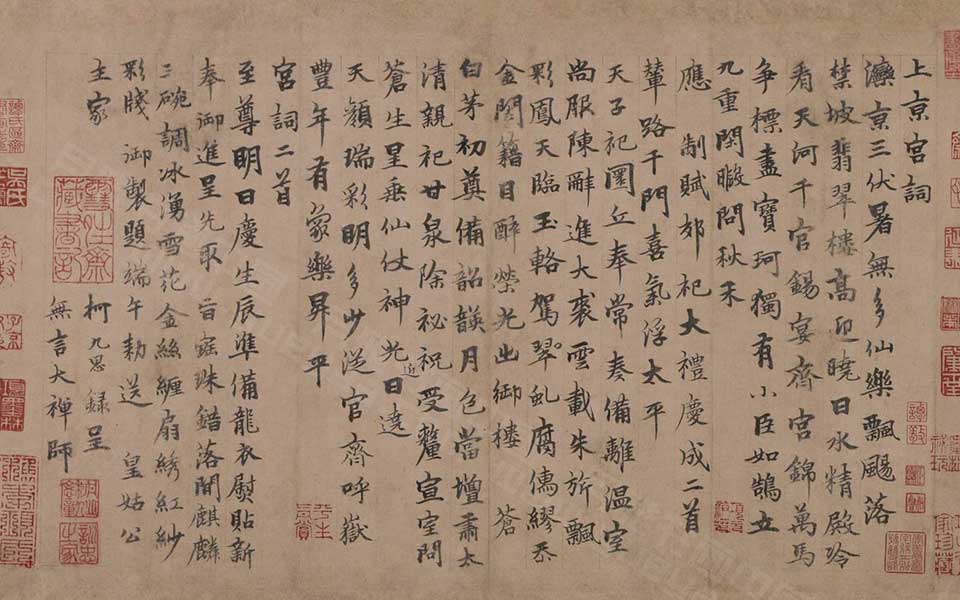 上京宮詞
灤京三伏暑無多仙樂飄颺落
禁坡翡翠樓高迎曉日水精殿冷
看天河千官錫宴齊宮錦萬馬
爭標盡寶珂獨有小臣如鵠立
九重閑暇問秋禾
應　制賦郊祀大禮慶成二首
輦路千門喜氣浮太平
天子祀圜丘奉常奏備離溫室
尚服陳辭進大裘雲載朱旂飄
彩鳳天臨玉輅駕翠虬腐儒繆忝
金閨籍日醉榮光出御樓　蒼
白茅初奠備韶韺月色當壇肅太
清親祀甘泉除祕祝受釐宣室問
蒼生星垂仙仗神光近日遶
天顏瑞彩明多少從官齊呼嶽
豐年有象樂昇平
宮詞二首
至尊明日慶生辰準備龍衣熨貼新
奉御進呈先取旨寶珠錯落間麒麟
三碗調冰湧雪花金絲纏扇綉紅紗
彩牋御製題端午勑送皇姑公
主家
柯九思錄呈
無言大禪師